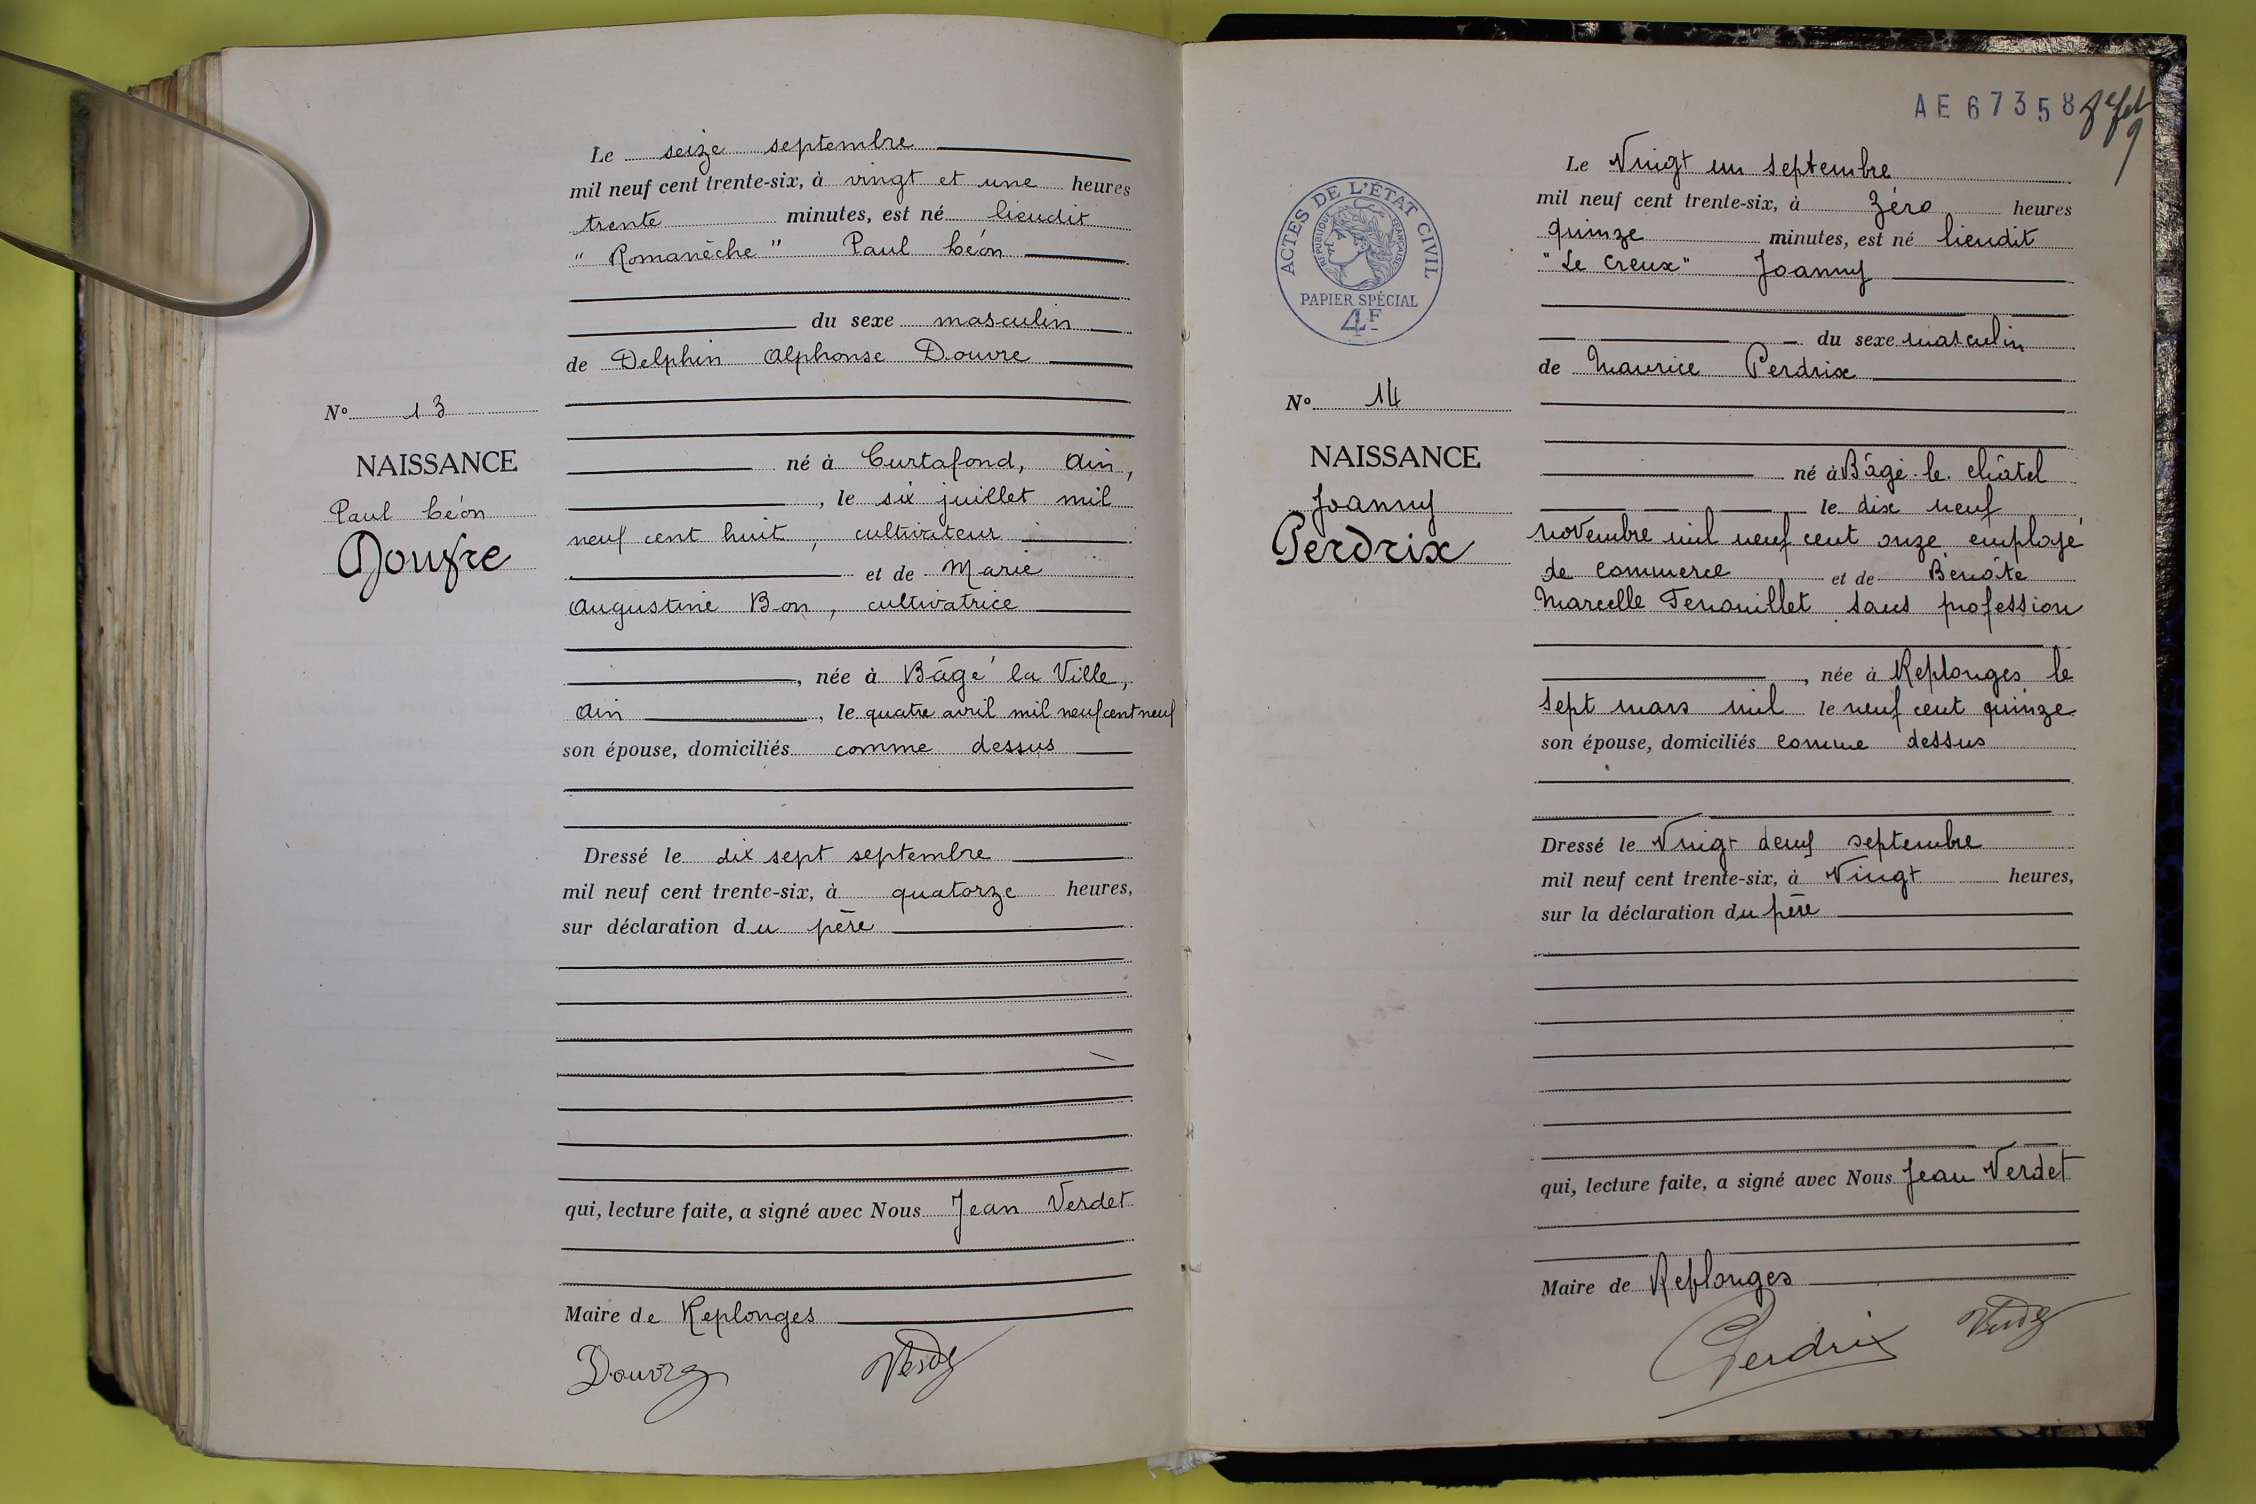 Le seize septembre
mil neuf cent trente-six, à vingt et une heures
trente minutes, est né lieudit
" Romanèche " Paul Léon
du sexe masculin
de Delphin Alphonse Douvre
né à Curtafond, Ain,
, le six juillet mil
neuf cent huit, cultivateur
et de Marie
Augustine Bon, cultivatrice
, née à Bâgé la Ville,
Ain , le quatre avril mil neuf cent neuf
son épouse, domiciliés comme dessus
Dressé le dix sept septembre
mil neuf cent trente-six, à quatorze heures,
sur déclaration du père
qui, lecture faite, a signé avec Nous Jean Verdet
Maire de Replonges
Nº 13
NAISSANCE
Paul Léon
Douvre
AE 67358
ACTES DE L'ÉTAT CIVIL
RÉPUBLIQUE FRANÇAISE
PAPIER SPÉCIAL
4F
Nº 14
NAISSANCE
Joanny
Perdrix
Le Vingt un septembre
mil neuf cent trente-six, à zéro heures
quinze minutes, est né lieudit
"Le Creux" Joanny
du sexe masculin
de Maurice Perdrix
né à Bâgé-le-Châtel
le dix neuf
novembre mil neuf cent onze employé
de commerce et de Benoîte
Marcelle Fenouillet sans profession
, née à Replonges le
sept mars mil le neuf cent quinze
son épouse, domiciliés comme dessus
Dressé le Vingt deux septembre
mil neuf cent trente-six, à Vingt heures,
sur la déclaration du père
qui, lecture faite, a signé avec Nous Jean Verdet
Maire de Replonges
Perdrix